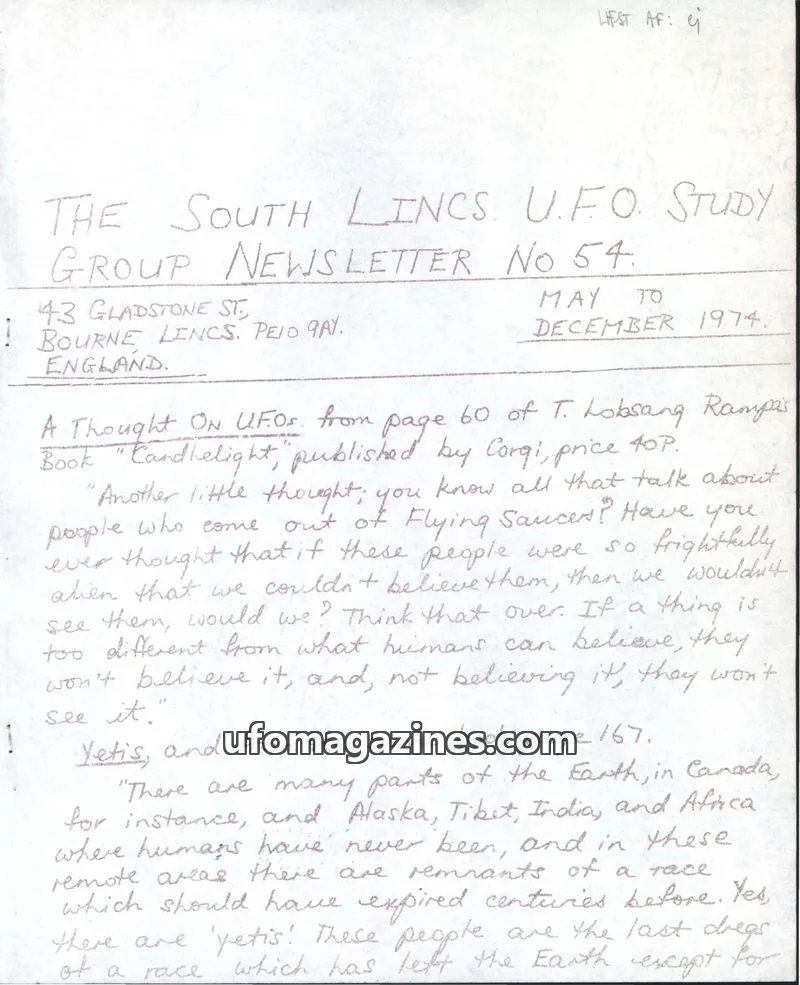 THE SOUTH LINCS. U.F.O. STUDY
GROUP NEWSLETTER NO 54.
43 GLADSTONE ST.,
BOURNE LINCS. PE10 9AY.
ENGLAND.
MAY TO
DECEMBER 1974.
A Thought ON U.F.Os. from page 60 of T. Lobsang Rampa's
Book "Candlelight," published by Corgi, price 40P.
"Another little thought; you know all that talk about
people who come out of Flying Saucers? Have you
ever thought that if these people were so frightfully
alien that we couldn't believe them, then we wouldn't
see them, would we? Think that over. If a thing is
too different from what humans can believe, they
won't believe it, and, not believing it, they won't
see it."
Yetis, and 167.
ufomagazines.com
"There are many parts of the Earth, in Canada,
for instance, and Alaska, Tibet, India, and Africa
where humans have never been, and in these
remote areas there are remnants of a race
which should have expired centuries before. Yes,
there are 'yetis'! These people are the last dregs
of a race which has left the Earth except for